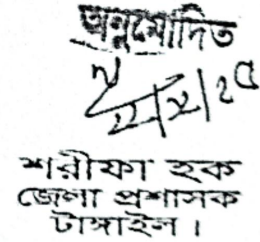 অনুমোদিত
শরীফা হক
জেলা প্রশাসক
টাঙ্গাইল।